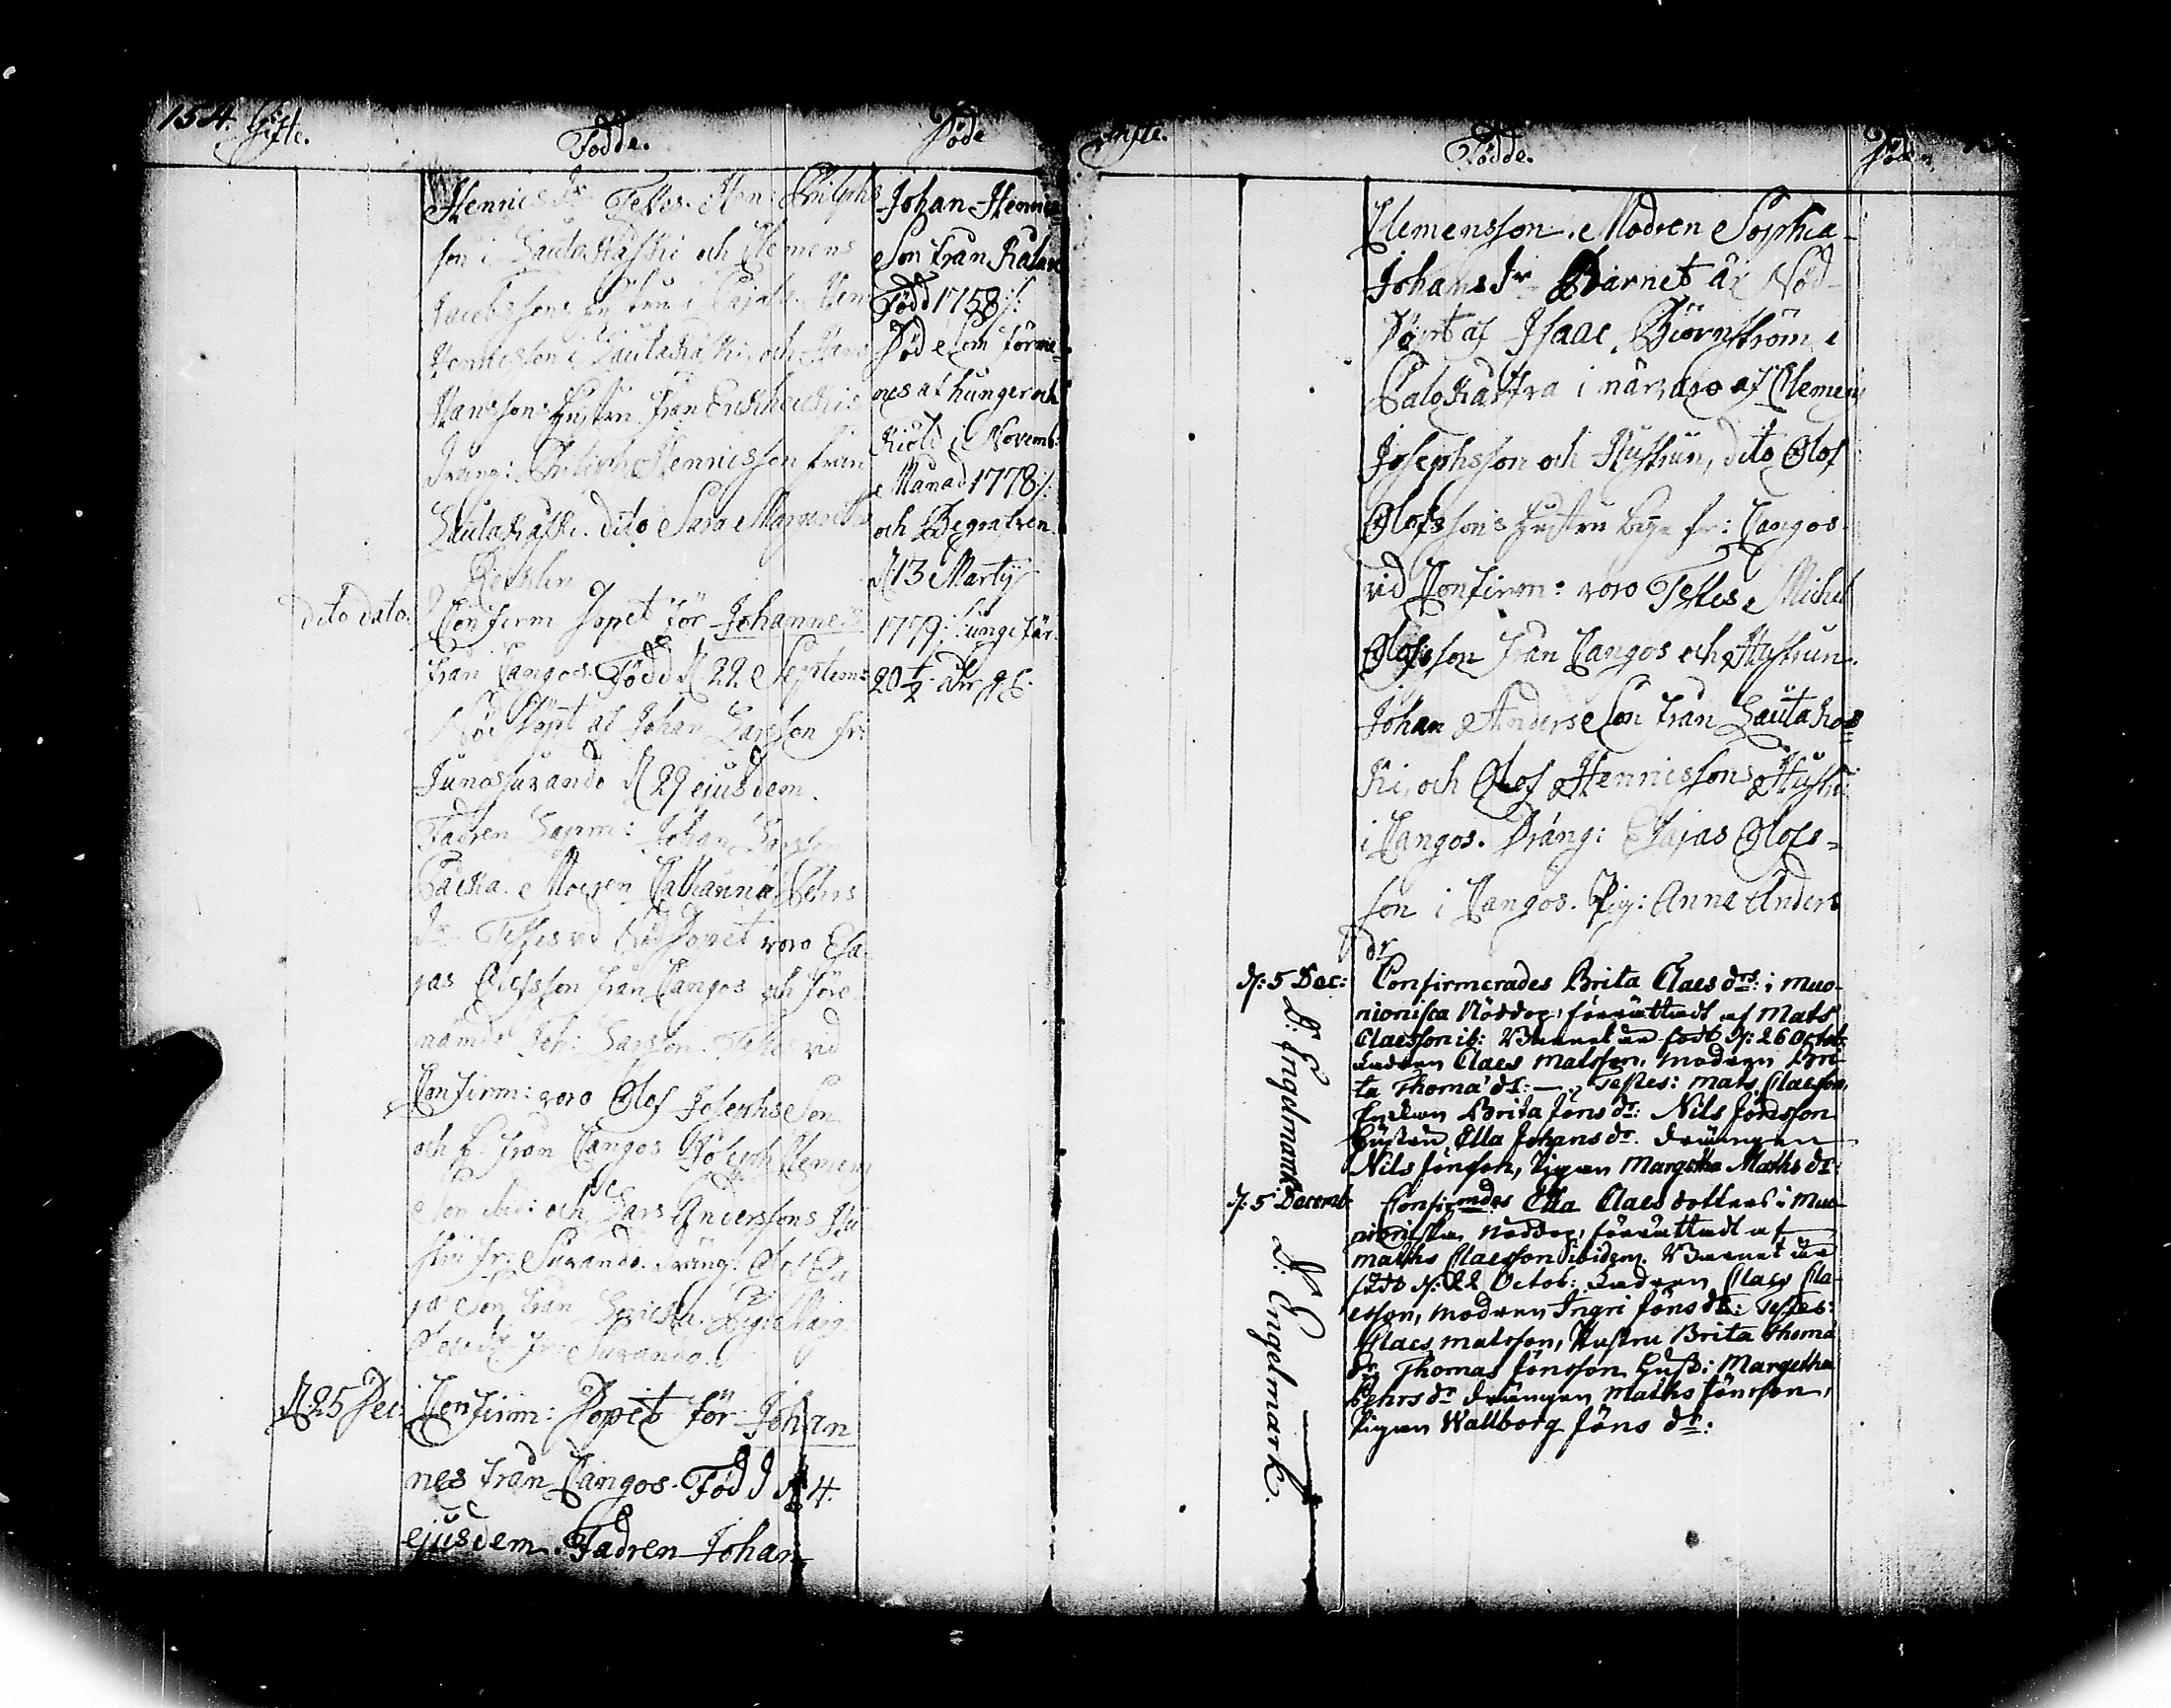 154. Gifte.
Födde.
Döde
Hennics dr Testes. Hen: Philphs
son i Lauta Kaski och Clemens
Jacobssons Hustru i Hen
Hennicsson i Lautakaski, och Hans
Hanssons Hustru från
Dräng: Philiph Hennicsson från
Lautakaski. dito Sara Margaretha
dito dato.
Confirm Dopet för Johannes
från Cangos. Född d 22 Septem:
Nöd Döpt af Johan Larsson fr:
Junossuando d 29 ejusdem.
Fadren Johan Larsson
Modren Catharina Pehrs
dr Testes vid Nöd Dopet voro Esa-
jas Olofsson från Cangos och före
nämde Joh: Larsson. Testes vid
Confirm: voro Olof Josephs Son
och h. från Cangos Joseph Clemens
Son ibid: och Lars Anderssons Hu
stru fr: Surando. dräng: Olof Esa
jas Son från
fr: Surando.
d. 25 Dec.
Confirm: Dopet för Johan
nes från Cangos. Född d 4.
ejusdem. Fadren Johan
Johan Hennics
Son från Kalave
Född 1758 /:
Död som förme-
nes af hunger och
Kiöld i Novemb:
Månad 1778 /:
och Begrafven
d 13 Martij
1779 /: ungefär
20 1/2 åhr gl.
Gifte.
Födde.
Döde.
Clemensson. Modren Sophia
Johans dr Barnet är Nöd-
Döpt af Isaac Biörnström i
Palokåstra i närvaro af Clemens
Josephsson och Hustrun, dito Olof
Olofssons Hustru fr: Cangos.
vid Confirm: voro Testes Michel
Olofsson från Cangos och Hustrun.
Johan Anders Son från Lauta kas=
ki, och Olof Hennicssons Hustru
i Cangos. Dräng: Esajas Olofs=
son i Cangos. Pig: Anna Anders
dr
d: 5 Dec:
Confirmerades Brita Claes drs: i Muo-
nionisca Nöddop, förrättadt af Mats
Claesson ib: Barnet är födt d: 26 Octob:
Fadren Claes Matsson, Modren Bri-
ta Thoma dr: — Testes: Mats Claesson,
Enkan Brita Jöns dr: Nils Jönsson
Hustru Ella Johans dr. drängen
Nils Jönsson, Pigan Margetha Maths dr:
D: Engelmark
d: 5 Decemb:
Confirmdes Ella Claes dotters i Muo-
nioniska Nöddop, förrättadt af
Maths Claesson ibidem. Barnet är
födt d: 22 Octob: Fadren Claes Cla-
esson, Modren Ingri Jöns dr: Testes:
Claes Matsson, Hustru Brita Thoma
dr Thomas Jönsson Hust: Margetha
Pehrs dr drängen Maths Jönsson,
Pigan Wallborg Jöns dr:
D: Engelmark.